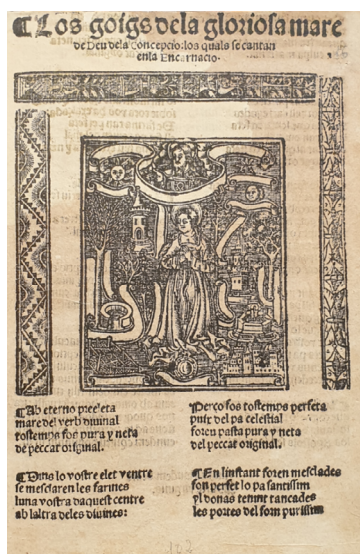 ¶Los goigs dela gloriosa mare
de Deu dela concepcio: los quals se cantan
enla Encarnacio.
¶Ab eterno preeleta
mare del verb diuinal
tostemps fos pura y neta
de peccat original.
¶Dins lo vostre elet ventre
se mesclaren les farines
luna vostra daquest centre
ab laltra deles diuines:
Perço fos tostemps perfeta
puix del pa celestial
foreu pasta pura y neta
del peccat original.
¶En linstant foren mesclades
fon perfet lo pa santissim
yl donas tenint tancades
les portes del forn purissim